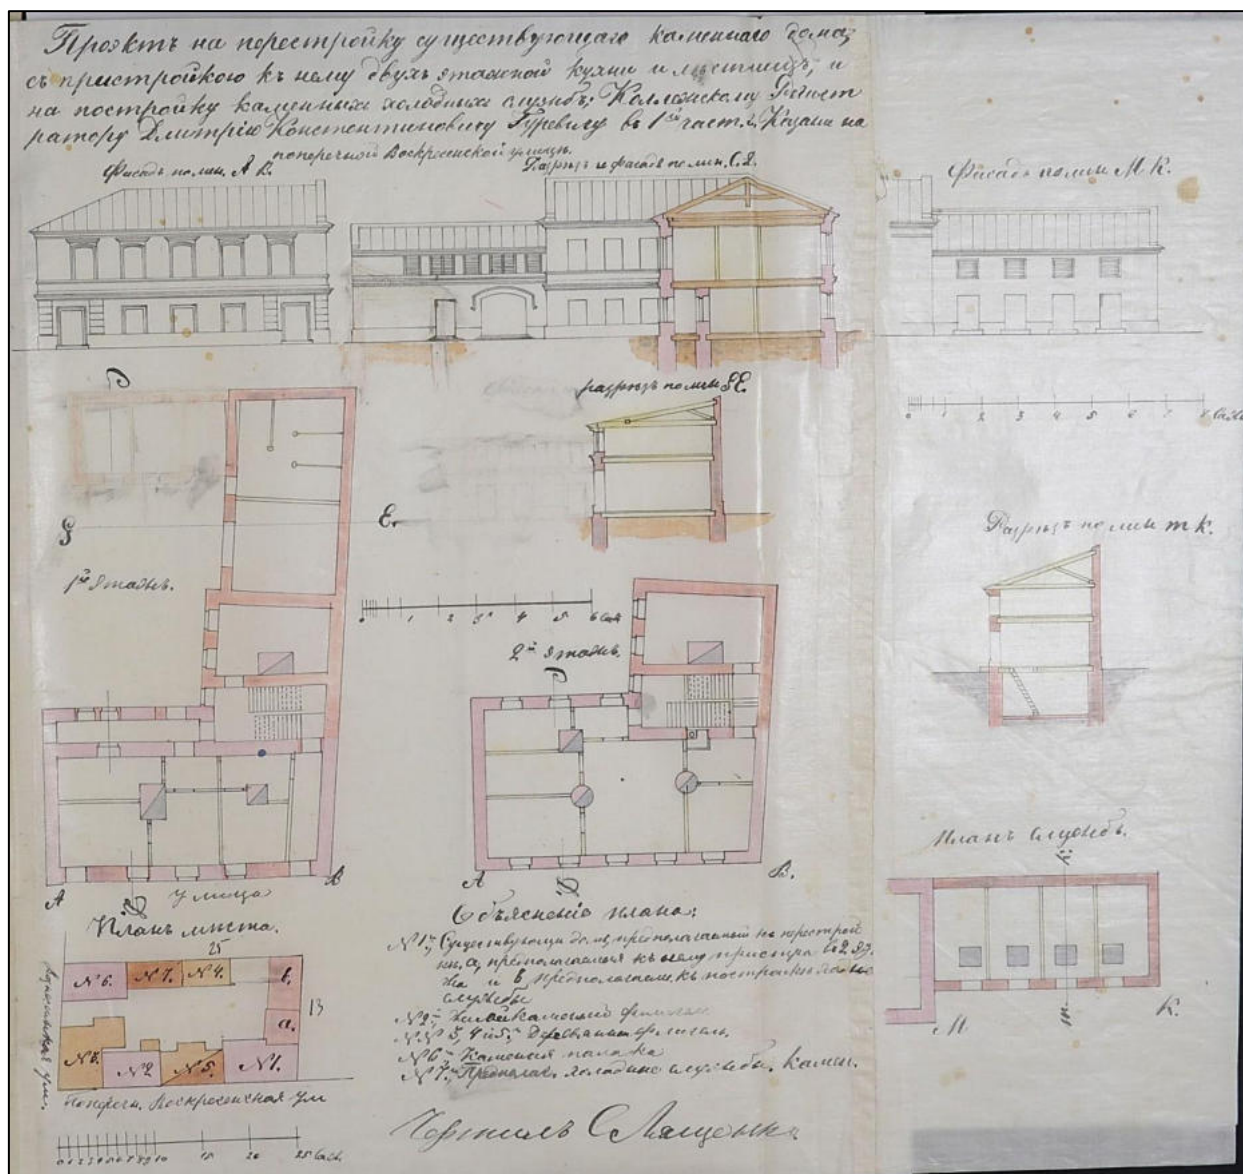 Проэктъ на перестройку существующаго каменнаго дома,
съ пристройкою къ нему двухъ этажной кухни и лѣстницъ, и
на постройку каменныхъ холодныхъ службъ: Коллежскому Регист
ратору Дмитрію Константиновичу Гуревичу въ 1ой части г. Казани на
поперечной Воскресенской улицѣ.
Фасадъ по лин. А В.
Разрѣзъ и фасадъ по лин. С. D.
Фасадъ по лин М К.
разрѣзъ по лин
0 1 2 3 4 5 6 7 8 Саж
E.
Разрѣзъ по лин m К.
1й Этажъ.
0 1 2 3 4 5 6 Саж
2й этажъ.
Планъ службъ.
А Улица В
А В.
М m. К.
Планъ мѣста.
25
№6. №7. №4. в.
13
а.
№3. №2 №5. №1.
ул.
Попереч. Воскресенская ул
0 1 2 3 4 5 6 7 8 9 10 15 20 25 Саж.
Объясненіе плана:
№1й Существующій домъ, предполагаемый на перестрой
ку, а, предполагаемая къ нему пристрой въ 2 эта
жа и в предполагаем. къ постройкѣ
службы
№2й Жилой каменный флигель
№№ 3, 4 и 5й Деревянные флигель.
№6й Каменная палатка
№7й Предполаг. холодные службы. камен.
Чертилъ С Лященко